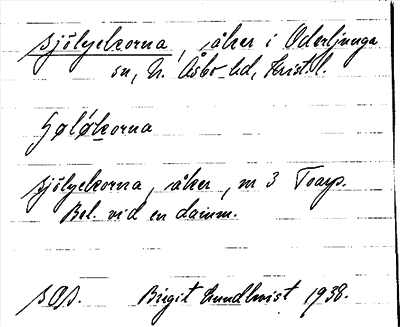 sjölyckorna, åker i Oderljunga
sn, N. Åsbo hd, Krist. l.
sjölyckorna, åker, nr 3 Toarp.
Bel. vid en damm.
Birgit Lundkvist 1938.